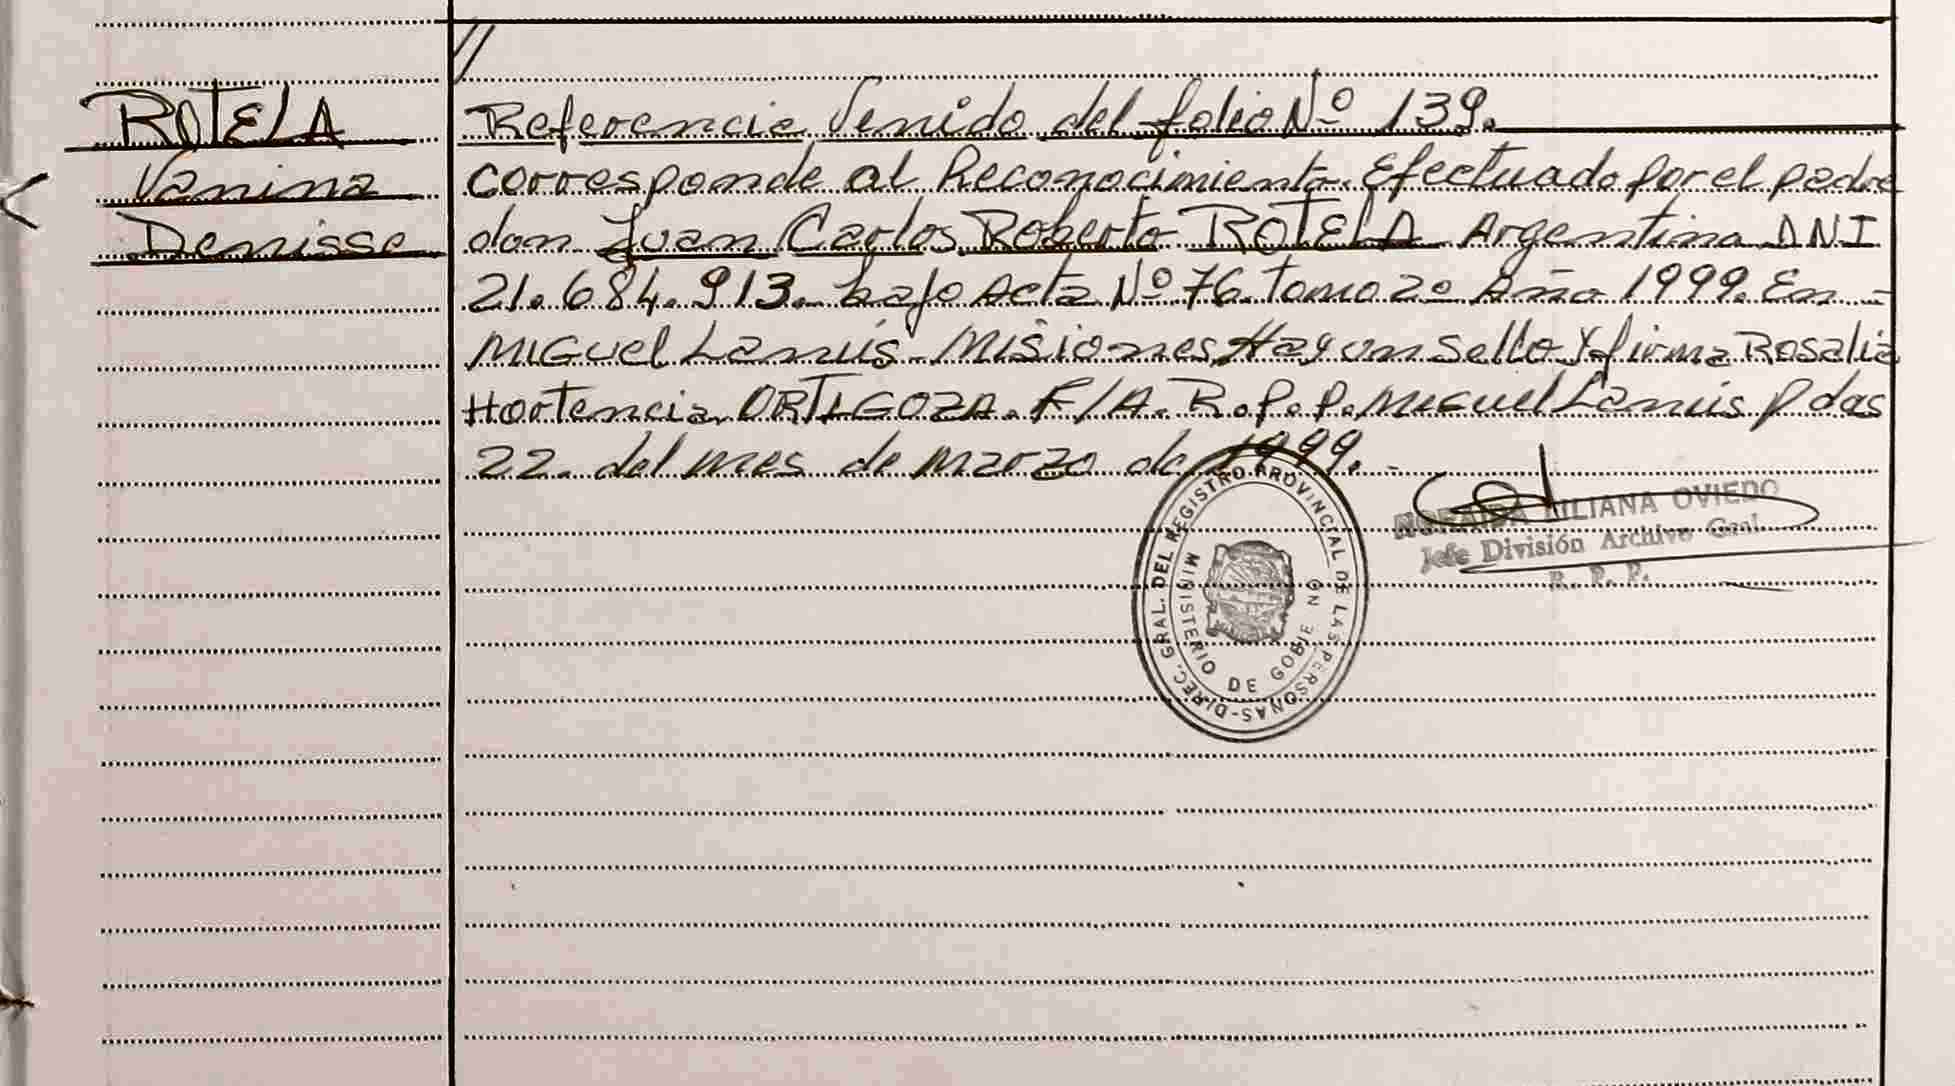 //
ROTELA
Vanina
Denisse
Referencia Venido del folio Nº 139.
corresponde al Reconocimiento Efectuado por el padre
don Juan Carlos Roberto ROTELA Argentino DNI
21.684.913. bajo Acta Nº 76. Tomo 2º Año 1999. En -
Miguel Lanús - Misiones, Hay un sello y firma Rosalia
Hortencia ORTIGOZA. F/A. R.P.P. Miguel Lanús Pdas
22. del mes de marzo de 1999. -
DIREC. GRAL. DEL REGISTRO PROVINCIAL DE LAS PERSONAS-
MINISTERIO DE GOBIERNO
LILIANA OVIEDO
Jefe División Archivo Gral
R. P. P.